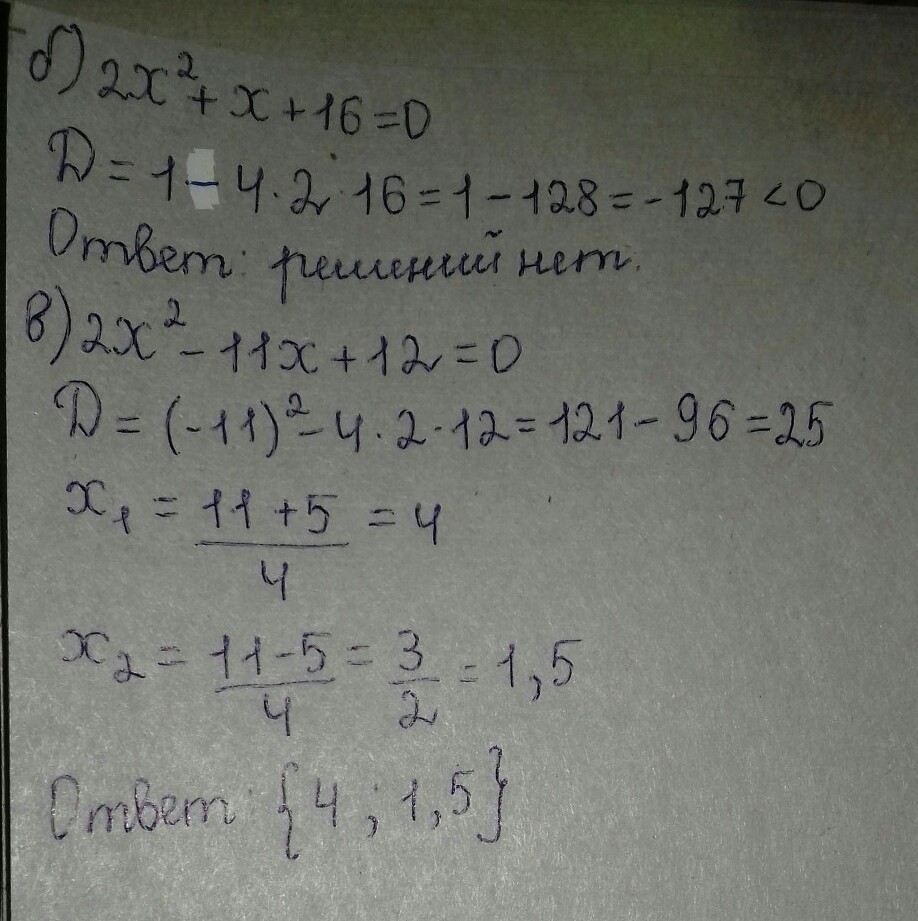 б) 2x² + x + 16 = 0
D = 1 - 4 · 2 · 16 = 1 - 128 = -127 < 0
Ответ: решений нет.
в) 2x² - 11x + 12 = 0
D = (-11)² - 4 · 2 · 12 = 121 - 96 = 25
x₁ = (11 + 5)/4 = 4
x₂ = (11 - 5)/4 = 3/2 = 1,5
Ответ: {4 ; 1,5}